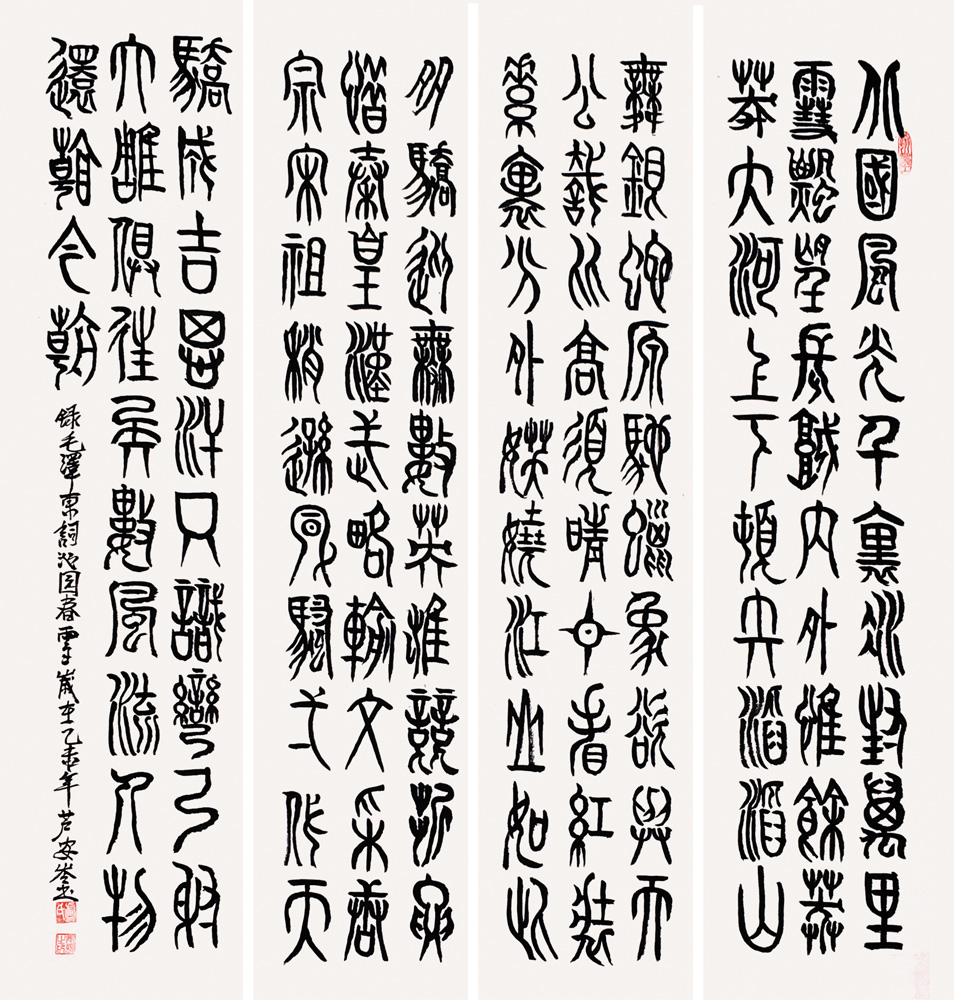 北國風光千裏冰封萬里
雪飄望長城內外惟餘莽
莽大河上下頓失滔滔山
舞銀蛇原馳蠟象欲與天
公試比高須晴日看紅裝
素裹分外妖嬈江山如此
多驕引無數英雄競折腰
惜秦皇漢武略輸文采唐
宗宋祖稍遜風騷一代天
驕成吉思汗只識彎弓射
大雕俱往矣數風流人物
還看今朝
錄毛澤東詞沁园春雪歲在乙未年芦安